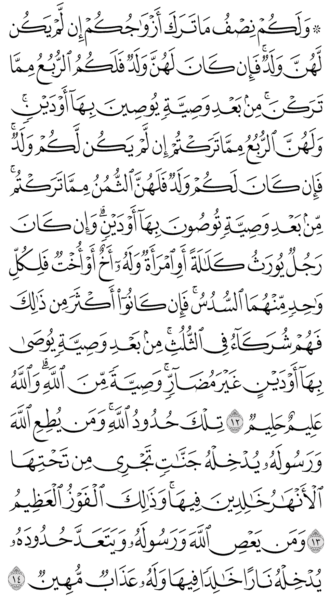 ۞ وَلَكُمْ نِصْفُ مَا تَرَكَ أَزْوَٰجُكُمْ إِن لَّمْ يَكُن
لَّهُنَّ وَلَدٌ ۚ فَإِن كَانَ لَهُنَّ وَلَدٌ فَلَكُمُ ٱلرُّبُعُ مِمَّا
تَرَكْنَ ۚ مِنۢ بَعْدِ وَصِيَّةٍ يُوصِينَ بِهَآ أَوْ دَيْنٍ ۚ
وَلَهُنَّ ٱلرُّبُعُ مِمَّا تَرَكْتُمْ إِن لَّمْ يَكُن لَّكُمْ وَلَدٌ ۚ
فَإِن كَانَ لَكُمْ وَلَدٌ فَلَهُنَّ ٱلثُّمُنُ مِمَّا تَرَكْتُم ۚ
مِّنۢ بَعْدِ وَصِيَّةٍ تُوصُونَ بِهَآ أَوْ دَيْنٍ ۗ وَإِن كَانَ
رَجُلٌ يُورَثُ كَلَٰلَةً أَوِ ٱمْرَأَةٌ وَلَهُۥٓ أَخٌ أَوْ أُخْتٌ فَلِكُلِّ
وَٰحِدٍ مِّنْهُمَا ٱلسُّدُسُ ۚ فَإِن كَانُوٓا۟ أَكْثَرَ مِن ذَٰلِكَ
فَهُمْ شُرَكَآءُ فِى ٱلثُّلُثِ ۚ مِنۢ بَعْدِ وَصِيَّةٍ يُوصَىٰ
بِهَآ أَوْ دَيْنٍ غَيْرَ مُضَآرٍّ ۚ وَصِيَّةً مِّنَ ٱللَّهِ ۗ وَٱللَّهُ
عَلِيمٌ حَلِيمٌ ١٢ تِلْكَ حُدُودُ ٱللَّهِ ۚ وَمَن يُطِعِ ٱللَّهَ
وَرَسُولَهُۥ يُدْخِلْهُ جَنَّٰتٍ تَجْرِى مِن تَحْتِهَا
ٱلْأَنْهَٰرُ خَٰلِدِينَ فِيهَا ۚ وَذَٰلِكَ ٱلْفَوْزُ ٱلْعَظِيمُ
١٣ وَمَن يَعْصِ ٱللَّهَ وَرَسُولَهُۥ وَيَتَعَدَّ حُدُودَهُۥ
يُدْخِلْهُ نَارًا خَٰلِدًا فِيهَا وَلَهُۥ عَذَابٌ مُّهِينٌ ١٤